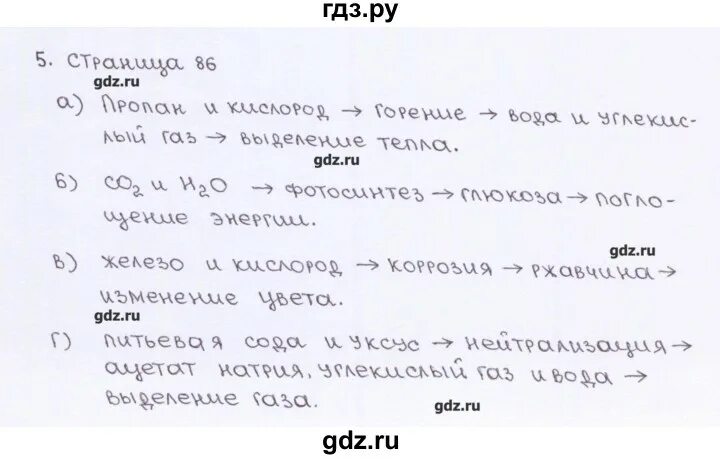 гдз.ру
5. Страница 86
gdz.ru
а) Пропан и кислород → горение → вода и углекис-
лый газ → выделение тепла.
gdz.ru
б) CO2 и H2O → фотосинтез → глюкоза → погло-
щение энергии.
gdz.ru
в) железо и кислород → коррозия → ржавчина →
изменение цвета.
gdz.ru
г) питьевая сода и уксус → нейтрализация →
ацетат натрия, углекислый газ и вода →
выделение газа.
gdz.ru
gdz.ru